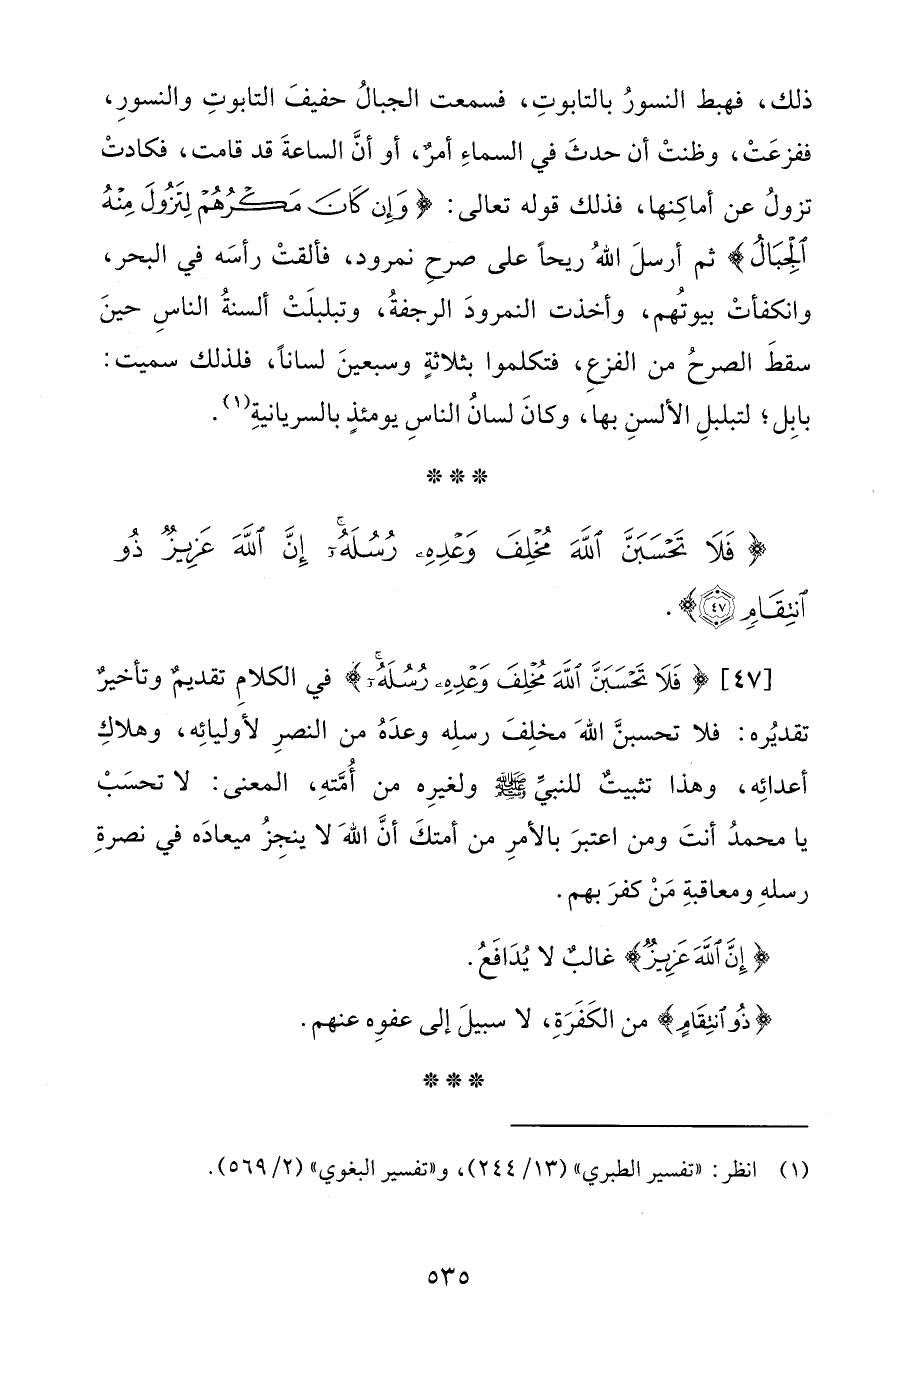 ذلك، فهبط النسورُ بالتابوتِ، فسمعت الجبالُ حفيفَ التابوتِ والنسورِ،
ففزعَتْ، وظنتْ أن حدثَ في السماءِ أمرٌ، أو أنَّ الساعةَ قد قامت، فكادتْ
تزولُ عن أماكِنها، فذلك قوله تعالى: ﴿وَإِن كَانَ مَكْرُهُمْ لِتَزُولَ مِنْهُ
ٱلْجِبَالُ﴾ ثم أرسلَ اللهُ ريحاً على صرحِ نمرود، فألقتْ رأسَه في البحر،
وانكفأتْ بيوتُهم، وأخذت النمرودَ الرجفةُ، وتبلبلَتْ ألسنةُ الناسِ حينَ
سقطَ الصرحُ من الفزعِ، فتكلموا بثلاثةٍ وسبعينَ لساناً، فلذلك سميت:
بابِل؛ لتبلبلِ الألسنِ بها، وكانَ لسانُ الناسِ يومئذٍ بالسريانيةِ(١).
***
﴿فَلَا تَحْسَبَنَّ ٱللَّهَ مُخْلِفَ وَعْدِهِۦ رُسُلَهُۥٓۚ إِنَّ ٱللَّهَ عَزِيزٌ ذُو
ٱنتِقَامٍ ٤٧﴾.
[٤٧] ﴿فَلَا تَحْسَبَنَّ ٱللَّهَ مُخْلِفَ وَعْدِهِۦ رُسُلَهُۥٓۚ﴾ في الكلامِ تقديمٌ وتأخيرٌ
تقديُره: فلا تحسبنَّ اللهَ مخلِفَ رسلِه وعدَهُ من النصرِ لأوليائِه، وهلاكِ
أعدائِه، وهذا تثبيتٌ للنبيِّ ﷺ ولغيرِه من أُمَّتهِ، المعنى: لا تحسَبْ
يا محمدُ أنتَ ومن اعتبرَ بالأمرِ من أمتكَ أنَّ اللهَ لا ينجِزُ ميعادَه في نصرةِ
رسلهِ ومعاقبةِ مَنْ كفرَ بهم.
﴿إِنَّ ٱللَّهَ عَزِيزٌ﴾ غالبٌ لا يُدَافَعُ.
﴿ذُو ٱنتِقَامٍ﴾ من الكَفَرَةِ، لا سبيلَ إلى عفوِه عنهم.
***
(١) انظر: «تفسير الطبري» (١٣/ ٢٤٤)، و«تفسير البغوي» (٢/ ٥٦٩).
٥٣٥